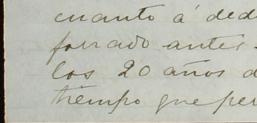 cuanto á ded
forzado antes
los 20 años d
tiempo que per